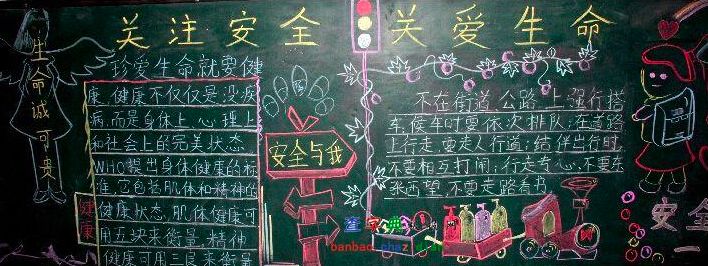 关注安全 关爱生命
生命诚可贵
珍爱生命就要健
康,健康不仅仅是没疾
病,而是身体上、心理上
和社会上的完美状态
WHO提出身体健康的标
准,它包括肌体和精神的
健康状态,肌体健康可
用五快来衡量,精神
健康可用三良来衡量
健康
安全与我
不在街道、公路上强行搭
车,候车时要依次排队;在道路
上行走,要走人行道;结伴出行时,
不要相互打闹;行走专心,不要东
张西望,不要走路看书
安全
一
查字典
banbao.chaz